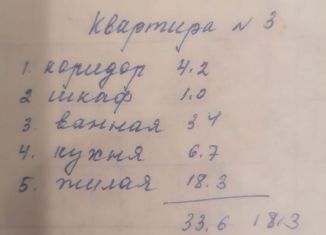 Квартира № 3
1. коридор 4.2
2 шкаф 1.0
3. ванная 3.4
4. кухня 6.7
5. жилая 18.3
33.6 18.3